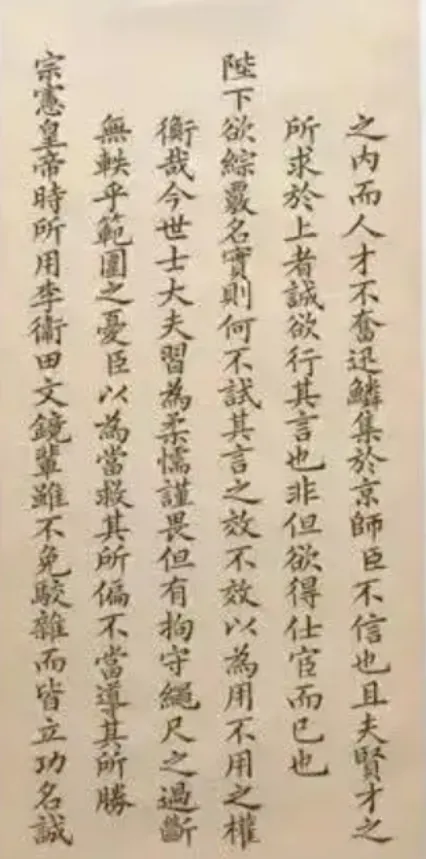 之內而人才不奮迅鱗集於京師臣不信也且夫賢才之
所求於上者誠欲行其言也非但欲得仕宦而已也
陛下欲綜覈名實則何不試其言之效不效以為用不用之權
衡哉今世士大夫習為柔懦謹畏但有拘守繩尺之過斷
無軼乎範圍之憂臣以為當救其所偏不當導其所勝
宗憲皇帝時所用李衛田文鏡輩雖不免駮雜而皆立功名誠